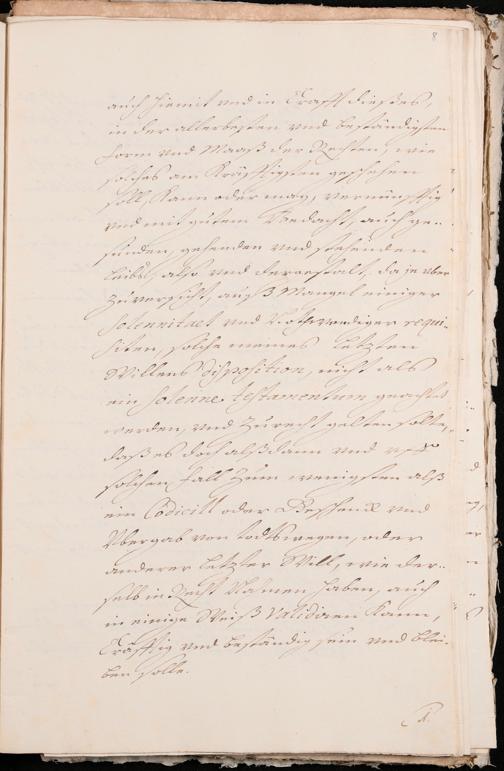 8
auch hiemit und in Krafft dießes,
in der allerbesten und beständigsten
form und Maaß der Rechten, wie
solches am Kräfftigsten geschehen
soll, kann oder mag, vernünfftig
und mit gutem Bedacht, auch ge-
sunden, gehenden und stehenden
Leibs, also und dergestalt, da je über
Zuversicht, auß Mangel einiger
Solennitaet und Nothwendiger requi-
siten, solche meines Letzten
Willens disposition, nicht als
ein solenne testamentum geachtet
werden, und Zurecht gelten sollte,
daß es doch alßdann und uff
solchen fall Zum wenigsten alß
ein Codicill oder Geschenck und
Übergab von todtswegen, oder
anderer Letzter Will, wie der-
selb in Recht Nahmen haben, auch
in einige Weiß validiren kann,
Kräfftig und beständig sein und blei-
ben solle.